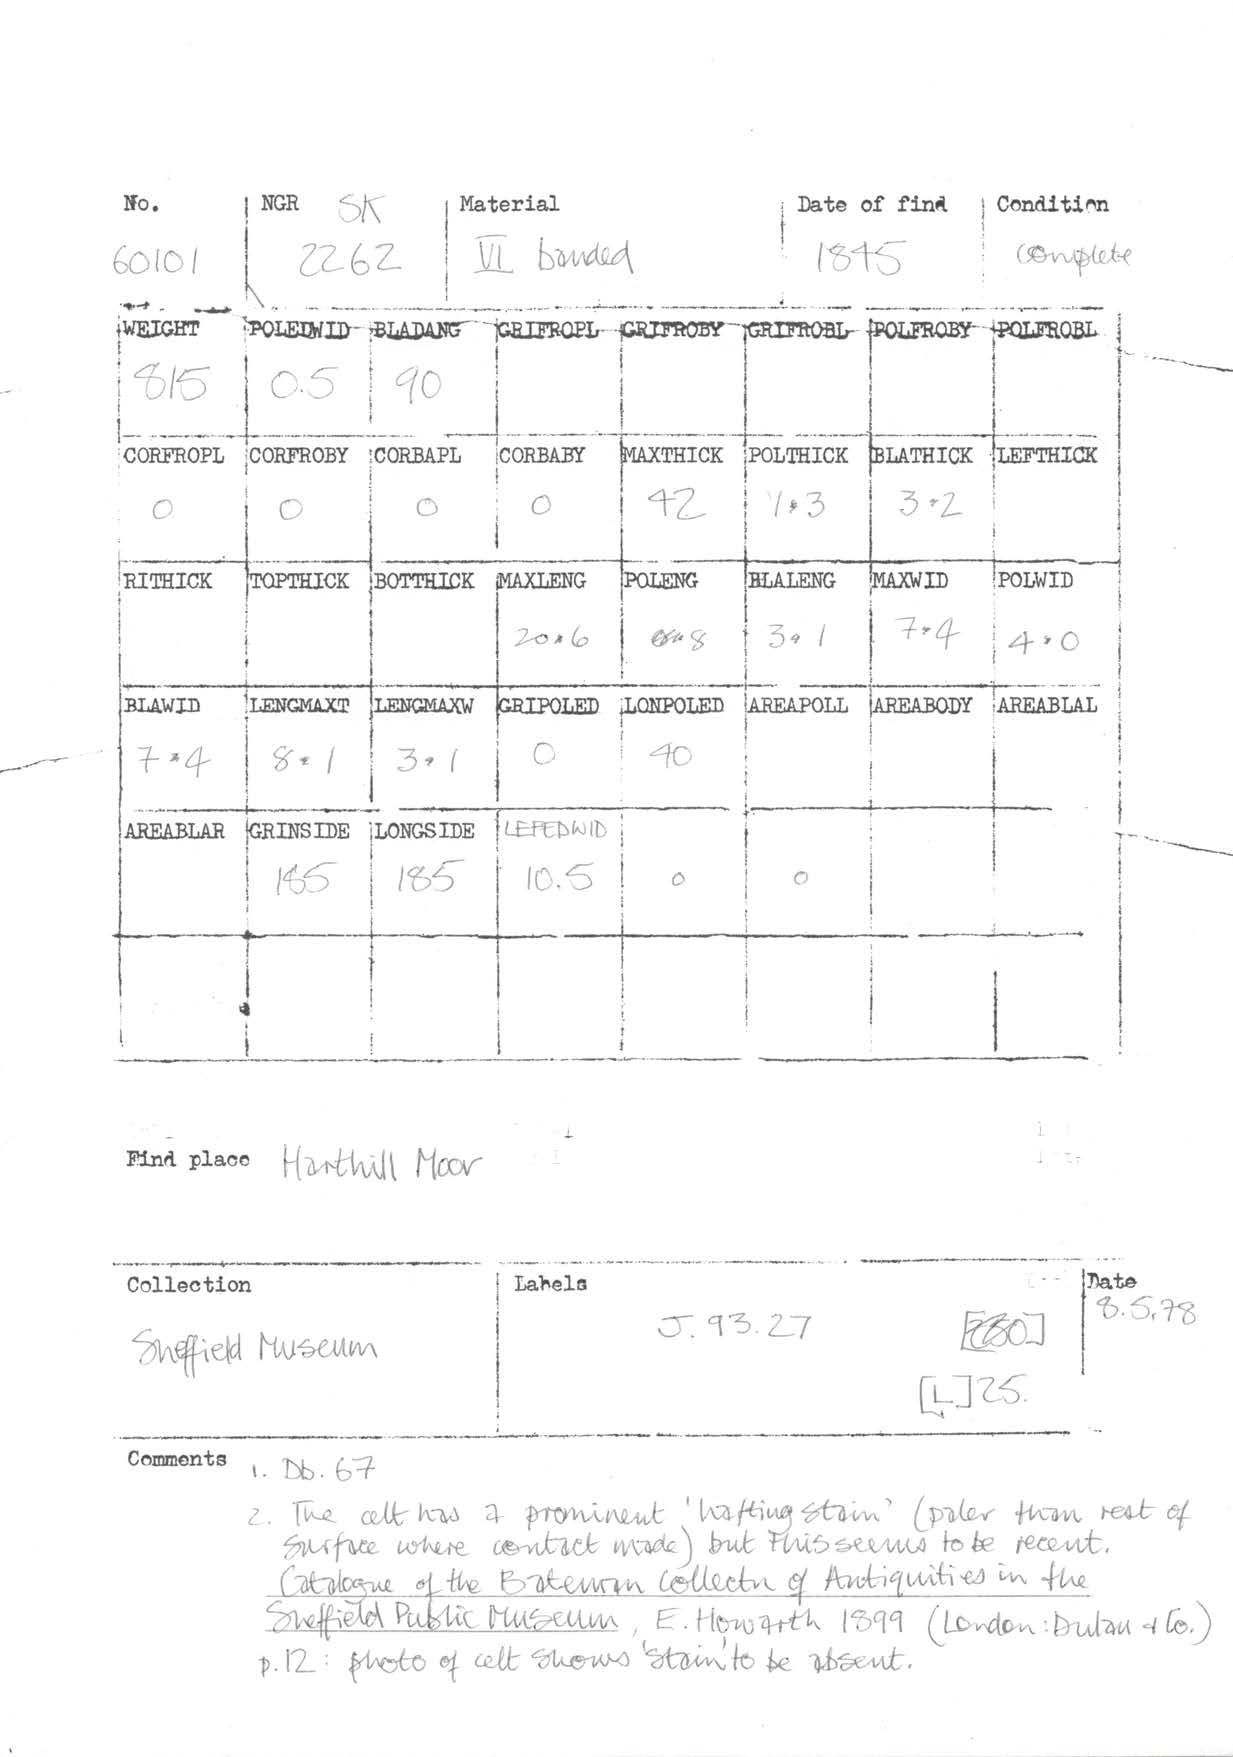 No. NGR SK Material Date of find Condition
60101 2262 VI banded 1845 complete
WEIGHT POLEDWID BLADANG GRIFROPL GRIFROBY GRIFROBL POLFROBY POLFROBL
815 0.5 90
CORFROPL CORFROBY CORBAPL CORBABY MAXTHICK POLTHICK BLATHICK LEFTHICK
0 0 0 0 42 1.3 3.2
RITHICK TOPTHICK BOTTHICK MAXLENG POLENG BLALENG MAXWID POLWID
20.6 3.1 7.4 4.0
BLAWID LENGMAXT LENGMAXW GRIPOLED LONPOLED AREAPOLL AREABODY AREABLAL
7.4 8.1 3.1 0 40
AREABLAR GRINSIDE LONGSIDE LEFEDWID
185 185 10.5 0 0
Find place Harthill Moor
Collection Labels Date
Sheffield Museum J.93.27 8.5.78
[L]25.
Comments 1. Db. 67
2. The celt has a prominent 'hafting stain' (paler than rest of
surface where contact made) but this seems to be recent.
Catalogue of the Bateman Collectn of Antiquities in the
Sheffield Public Museum, E. Howarth 1899 (London: Dulau & Co.)
p.12: photo of celt shows 'stain' to be absent.